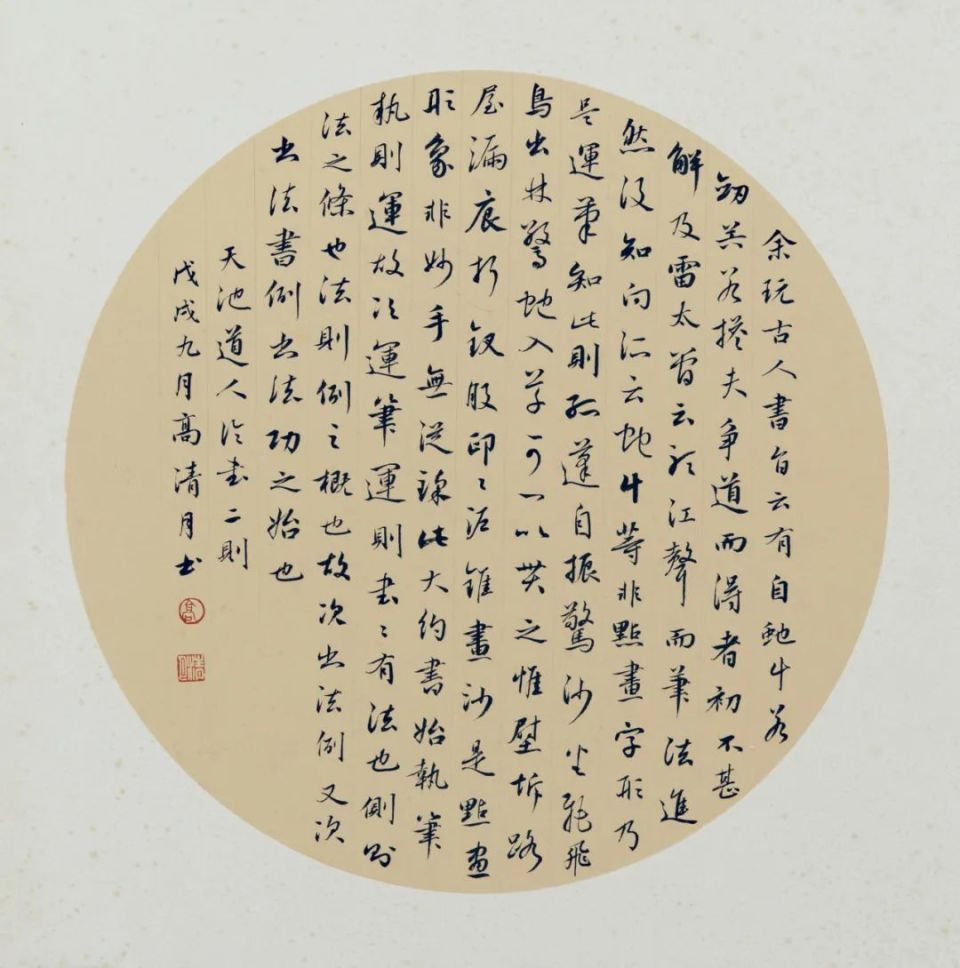 余玩古人書旨云有自虵斗若
劒器若擔夫爭道而得者初不甚
解及雷太簡云聽江聲而筆法進
然後知向所云虵斗等非點畫字形乃
是運筆知此則孤蓬自振驚沙坐飛飛
鳥出林驚虵入草可一以貫之惟壁坼路
屋漏痕折釵股印〻泥錐畫沙是點畫
形象非妙手無從臻此大約書始執筆
執則運故次運筆運則書〻有法也例則
法之條也法則例之概也故次書法例又次
書法書例書法功之始也
天池道人論書二則
戊戌九月高清月書
高